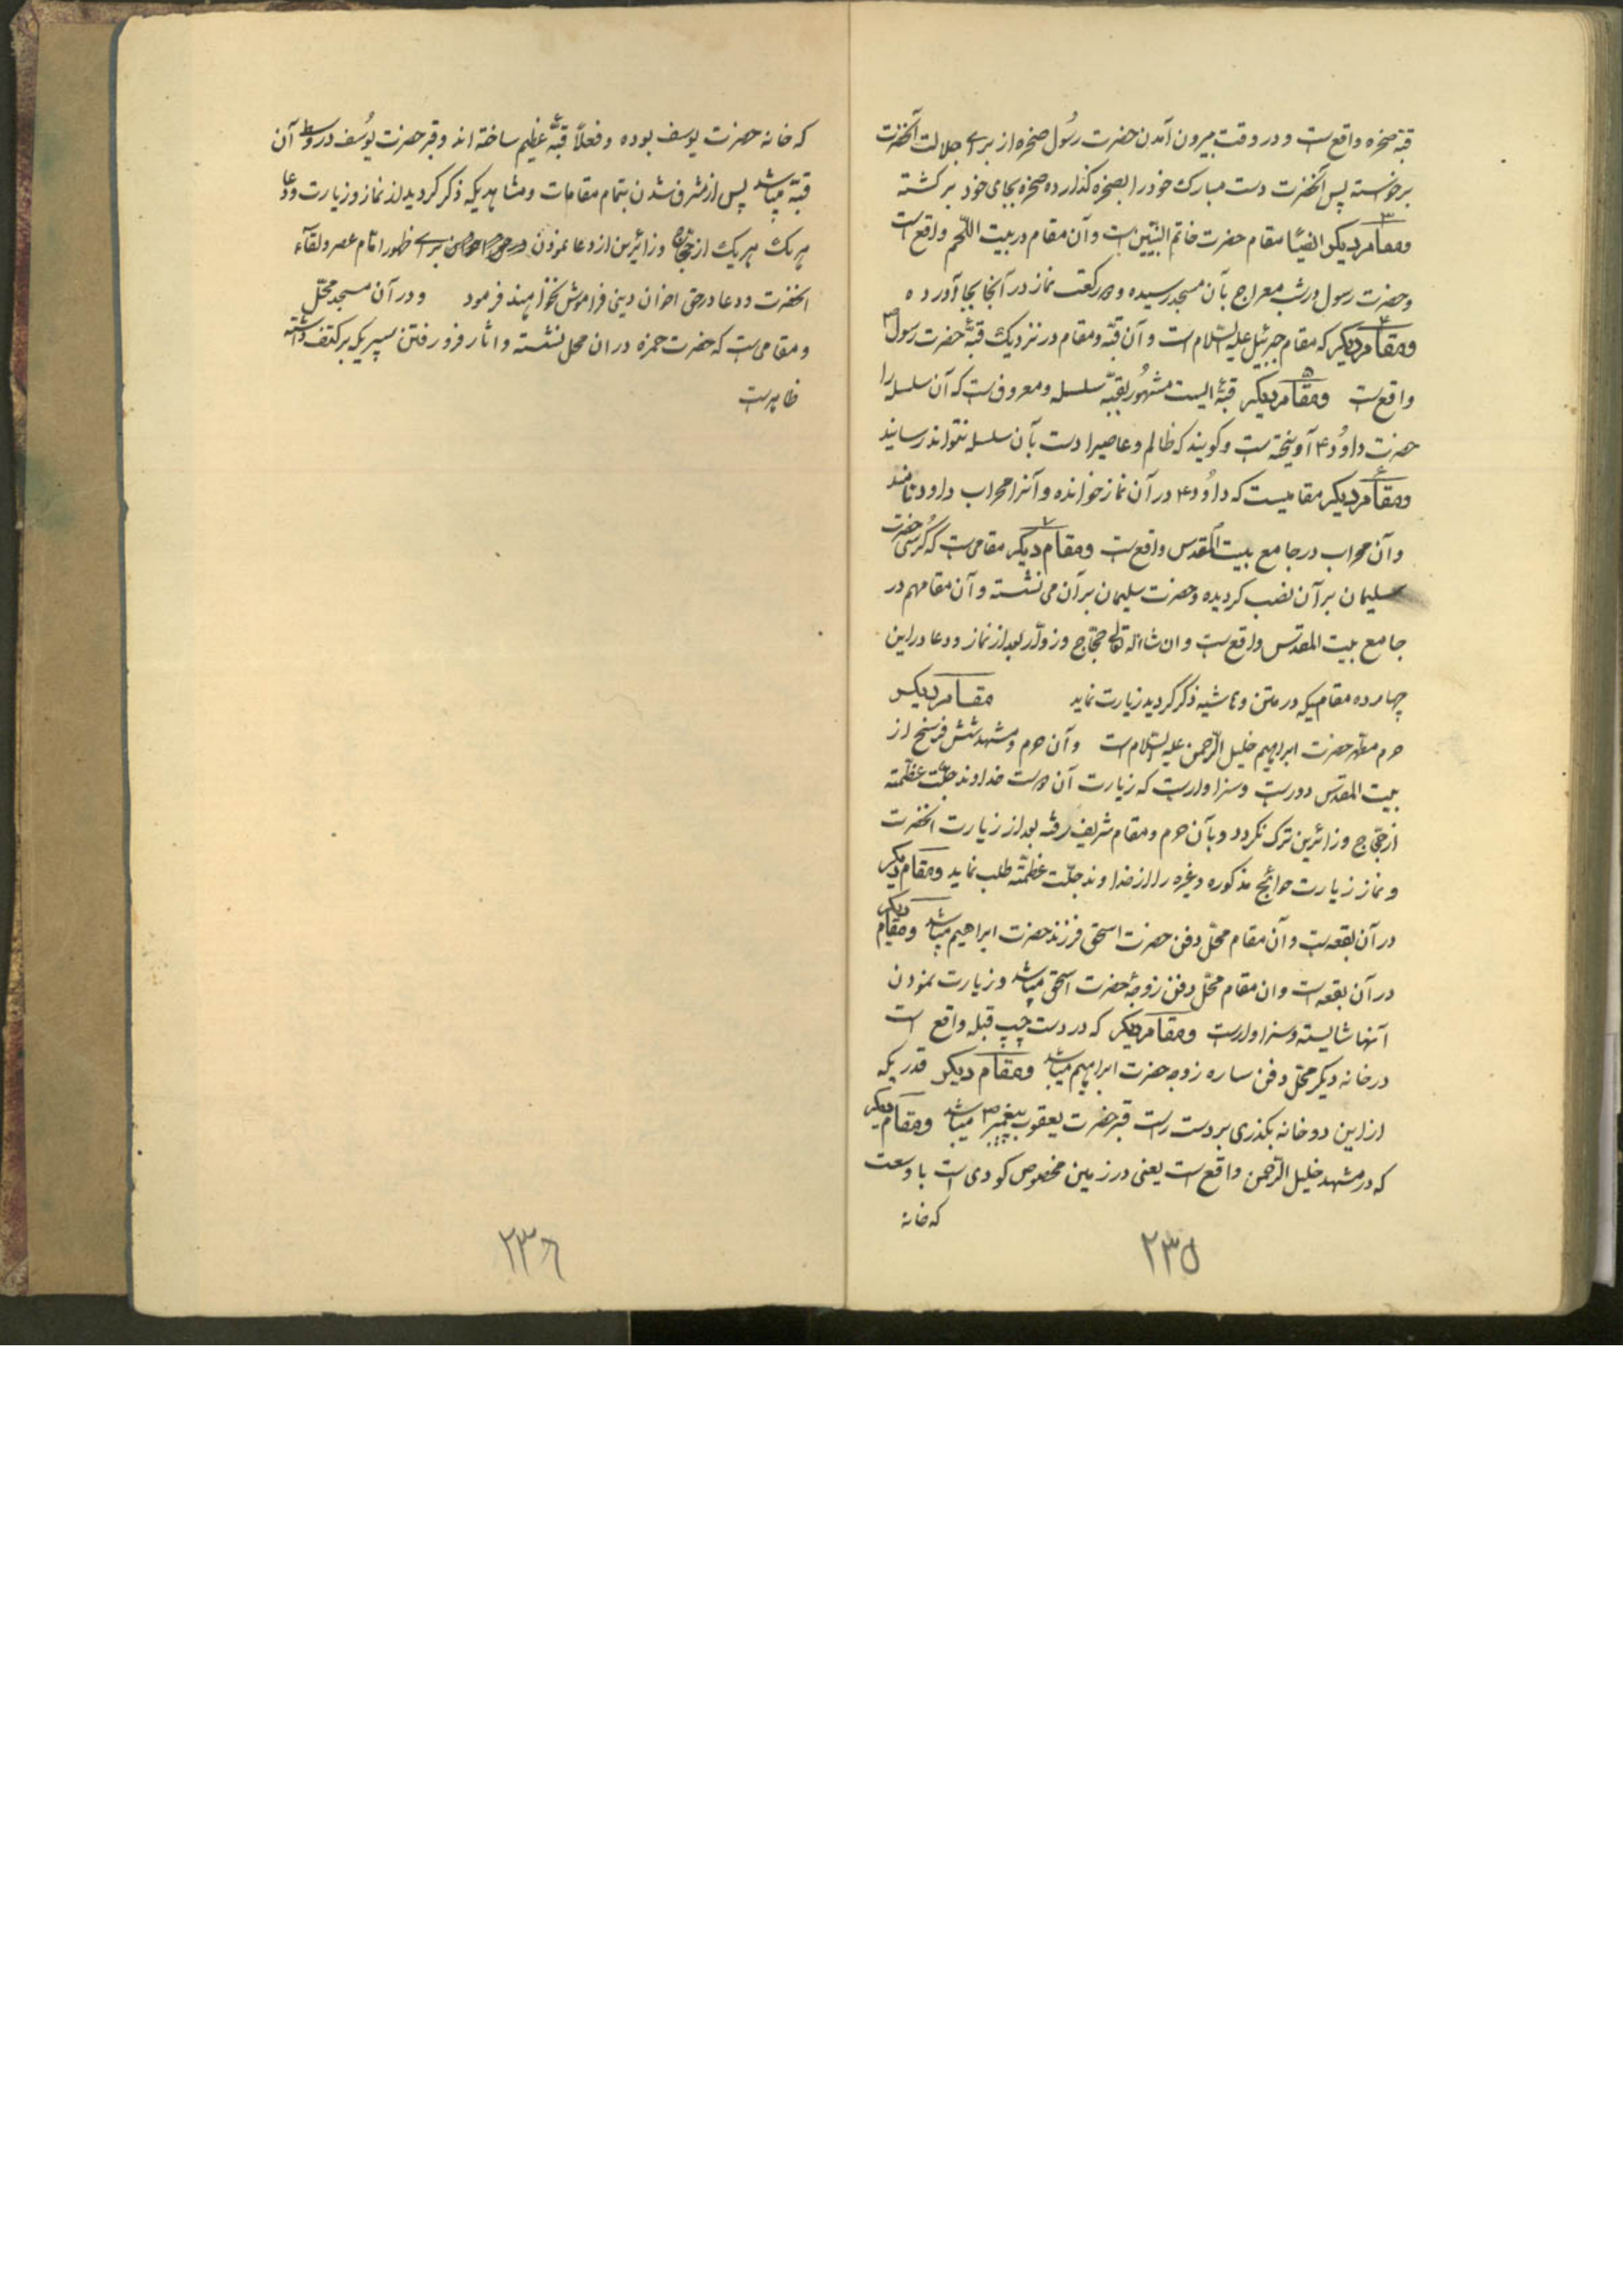 قبّه صخره واقع است و در وقت بیرون آمدن حضرت رسُول صخره از برای جلالت آنحضرت
برخواسته پس آنحضرت دست مبارک خود را بصخره گذارده صخره بجای خود برگشته
۳ ومقام دیگر ایضًا مقام حضرت خاتم النبّیین است وآن مقام در بیت اللّحم واقع است
وحضرت رسول در شب معراج بآن مسجد رسیده و دو رکعت نماز در آنجا بجا آورده
۴ ومقام دیگر که مقام جبرئیل علیه السّلام است وآن قبّه ومقام در نزدیک قبّهٔ حضرت رسول ص
واقع است ۵ ومقام دیگر قبّهٔ ایست مشهُور بقبّه سلسله ومعروف است که آن سلسله را
حضرت داوُد ۴ آویخته است وگویند که ظالم وعاصیرا دست بآن سلسله نتواند رسانید
۶ ومقام دیگر مقامیست که داوُد ۴ در آن نماز خوانده وآنرا محراب داود نامند
وآن محراب در جامع بیت المقدس واقع است ۷ ومقام دیگر مقامی است که کُرسی حضرت
سلیمان بر آن نصب گردیده وحضرت سلیمان بر آن می نشسته وآن مقام هم در
جامع بیت المقدّس واقع است وان شاء الله تعالی حجّاج وزوّار بعد از نماز ودعا در این
چهارده مقامیکه در متن وحاشیه ذکر گردید زیارت نماید مقام دیگر
حرم مطهّر حضرت ابراهیم خلیل الرّحمن علیه السّلام است وآن حرم ومشهد شش فرسخ از
بیت المقدّس دور است وسزاوار است که زیارت آن دوست خداوند جلّت عظمّته
از حجّاج وزائرین ترک نگردد وبآن حرم ومقام شریف رفته بعد از زیارت آنحضرت
ونماز زیارت حوائج مذکوره وغیره را از خداوند جلّت عظمّته طلب نماید ومقام دیگر
در آن بقعه است وآن مقام محلّ دفن حضرت اسحق فرزند حضرت ابراهیم میباشد ومقام دیگر
در آن بقعه است وان مقام محلّ دفن زوجهٔ حضرت اسحق میباشد وزیارت نمودن
آنها شایسته وسزاوار است ومقام دیگر که در دست چپ قبله واقع است
در خانه دیگر محلّ دفن ساره زوجه حضرت ابراهیم میباشد ومقام دیگر قدریکه
از این دو خانه بگذری بر دست راست قبر حضرت یعقوب پیغمبر میباشد ومقام دیگر
که در مشهد خلیل الرّحمن واقع است یعنی در زمین مخصوص گودی است با وسعت
که خانه
۲۳۵
که خانه حضرت یوسف بوده وفعلاً قبّهٔ عظیم ساخته اند وقبر حضرت یُوسف در وسط آن
قبّه میباشد پس از مشرف شدن بتمام مقامات ومشاهدیکه ذکر گردید از نماز وزیارت ودعا
هریک هریک از حجّاج وزائرین از دعا نمودن برای ظهور امام عصر ولقآء
آنحضرت ودعا در حق اخوان دینی فراموش نخواهند فرمود ودر آن مسجد محلّ
ومقامی است که حضرت حمزه در ان محل نشسته واثار فرو رفتن سپریکه بر کتف داشته
ظاهر است
۲۳۶